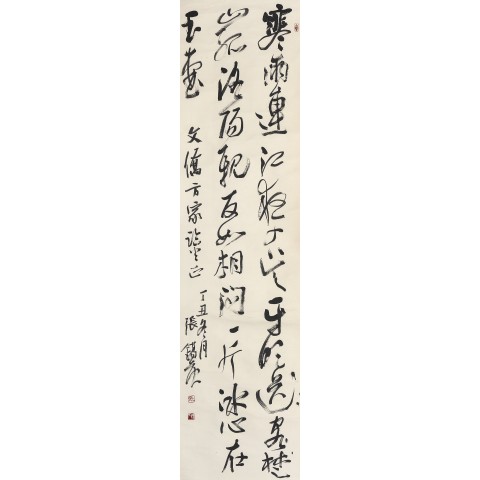 寒雨連江夜入吳平明送客楚
山孤洛陽親友如相問一片冰心在
玉壺
文僑方家正
丁丑冬月
張錫